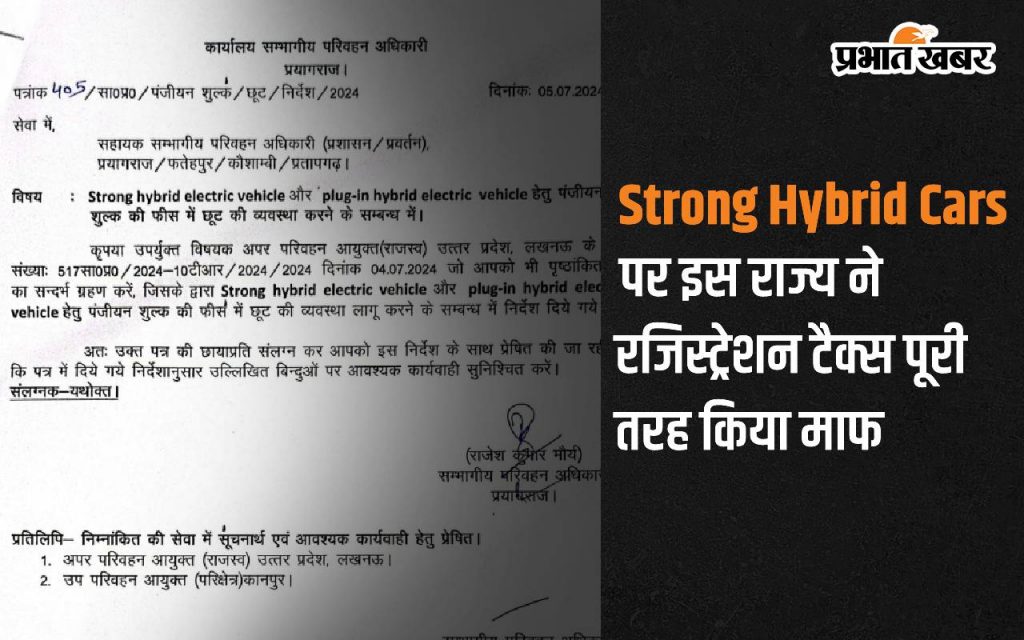 कार्यालय सम्भागीय परिवहन अधिकारी
प्रयागराज।
पत्रांक 405/सा0प्र0/पंजीयन शुल्क/छूट/निर्देश/2024 दिनांकः 05.07.2024
सेवा में,
सहायक सम्भागीय परिवहन अधिकारी (प्रशासन/प्रवर्तन),
प्रयागराज/फतेहपुर/कौशाम्बी/प्रतापगढ़।
विषय : Strong hybrid electric vehicle और plug-in hybrid electric vehicle हेतु पंजीयन
शुल्क की फीस में छूट की व्यवस्था करने के सम्बन्ध में।
कृपया उपर्युक्त विषयक अपर परिवहन आयुक्त(राजस्व) उत्तर प्रदेश, लखनऊ के
संख्याः 517सा0प्र0/2024-10टीआर/2024/2024 दिनांक 04.07.2024 जो आपको भी पृष्ठांकित
का सन्दर्भ ग्रहण करें, जिसके द्वारा Strong hybrid electric vehicle और plug-in hybrid elec
vehicle हेतु पंजीयन शुल्क की फीस में छूट की व्यवस्था लागू करने के सम्बन्ध में निर्देश दिये गये
अतः उक्त पत्र की छायाप्रति संलग्न कर आपको इस निर्देश के साथ प्रेषित की जा रह
कि पत्र में दिये गये निर्देशानुसार उल्लिखित बिन्दुओं पर आवश्यक कार्यवाही सुनिश्चित करें।
संलग्नक-यथोक्त।
(राजेश कुमार मौर्य)
सम्भागीय परिवहन अधिकार
प्रयागराज।
प्रतिलिपि- निम्नांकित की सेवा में सूचनार्थ एवं आवश्यक कार्यवाही हेतु प्रेषित।
1. अपर परिवहन आयुक्त (राजस्व) उत्तर प्रदेश, लखनऊ।
2. उप परिवहन आयुक्त (परिक्षेत्र)कानपुर।
सम्भागीय परिवहन अधिक
प्रभात खबर
Strong Hybrid Cars
पर इस राज्य ने
रजिस्ट्रेशन टैक्स पूरी
तरह किया माफ